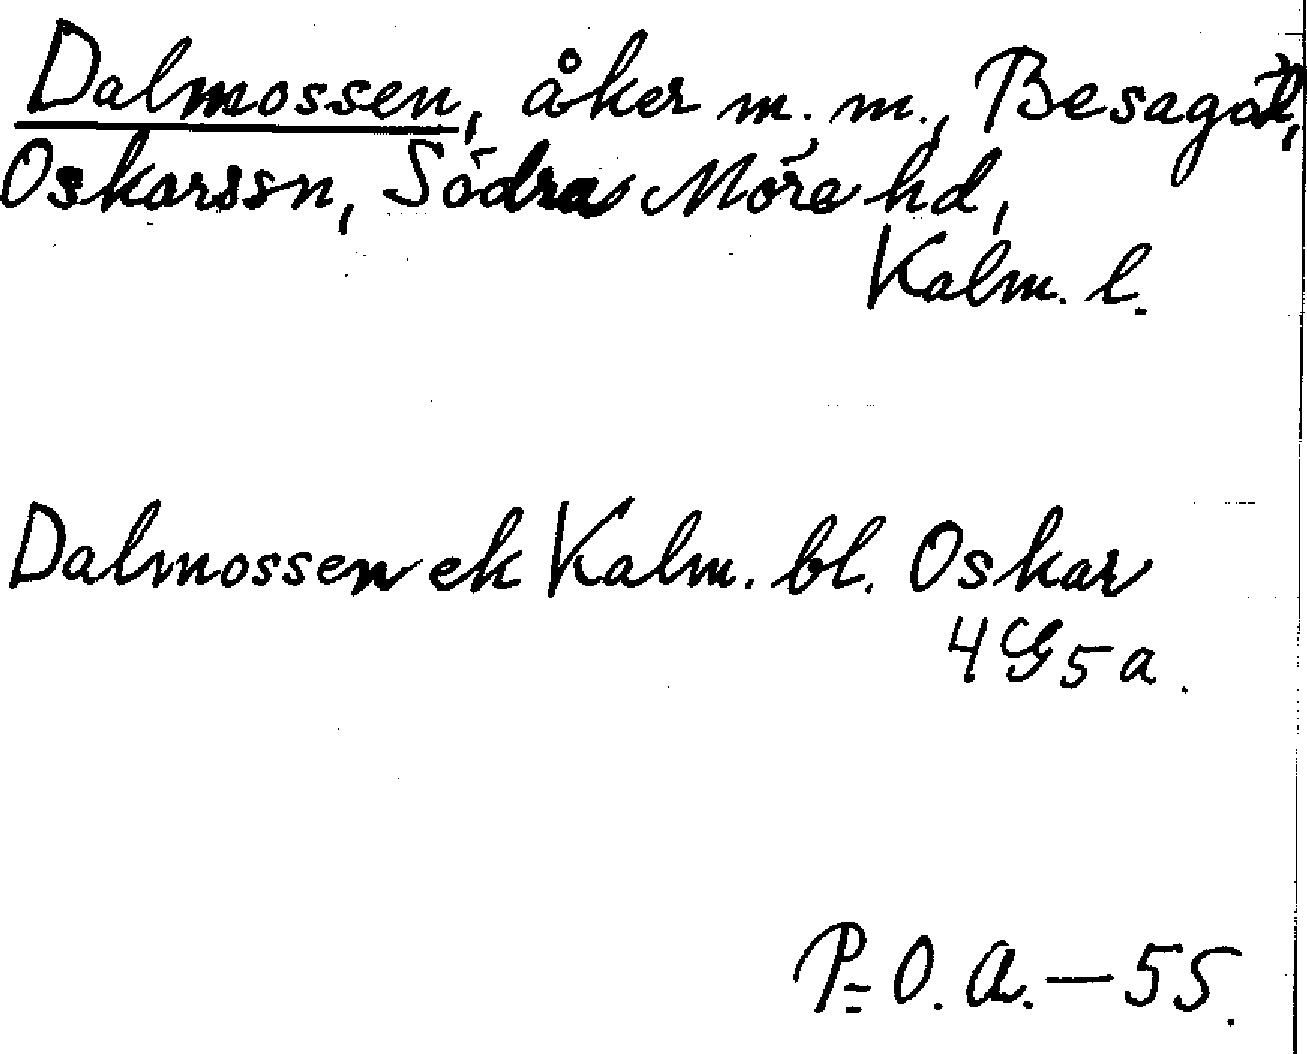 Dalmossen, åker m. m., Besagat,
Oskarssn, Södra Möre hd,
Kalm. l.
Dalmossen ek Kalm. bl. Oskar
4 G 5 a.
P.O.A. — 55.